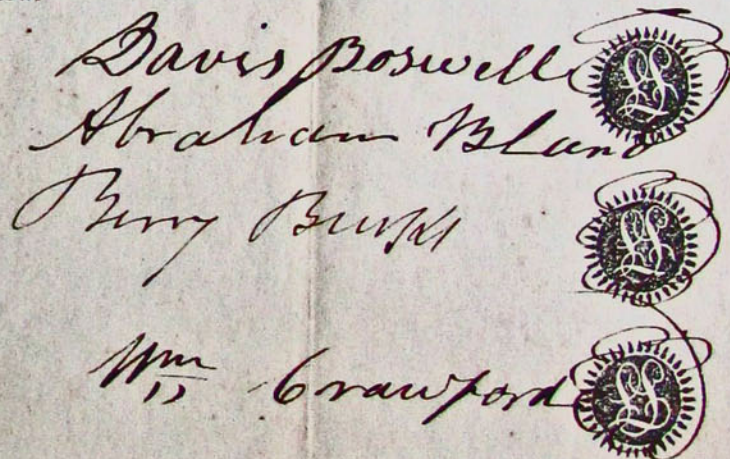 Davis Boswell LS
Abraham Bland
Berry LS
Wm Crawford LS